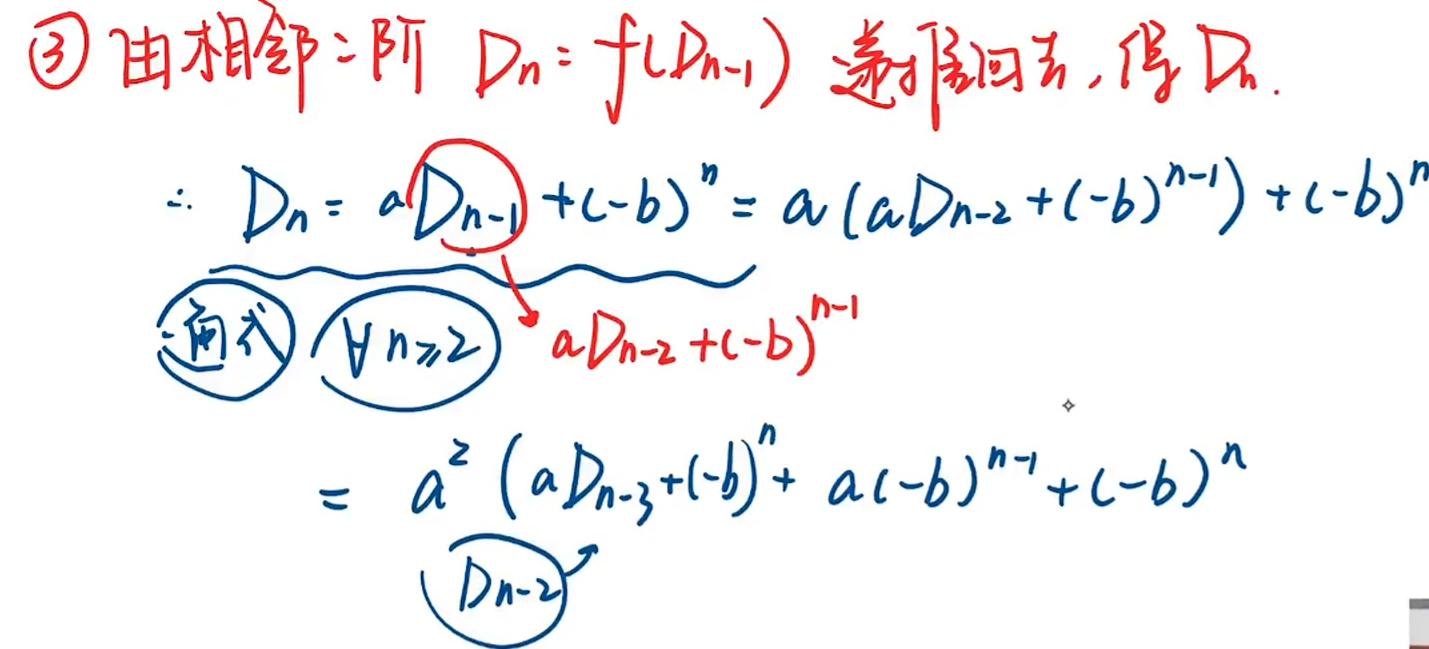 ③ 由相邻二阶 Dn = f(Dn-1) 递推回去, 得 Dn.
∴ Dn = aDn-1 + (-b)^n = a(aDn-2 + (-b)^(n-1)) + (-b)^n
通式 ∀n≥2 aDn-2 + (-b)^(n-1)
= a²(aDn-3 + (-b)^n + a(-b)^(n-1) + (-b)^n
Dn-2